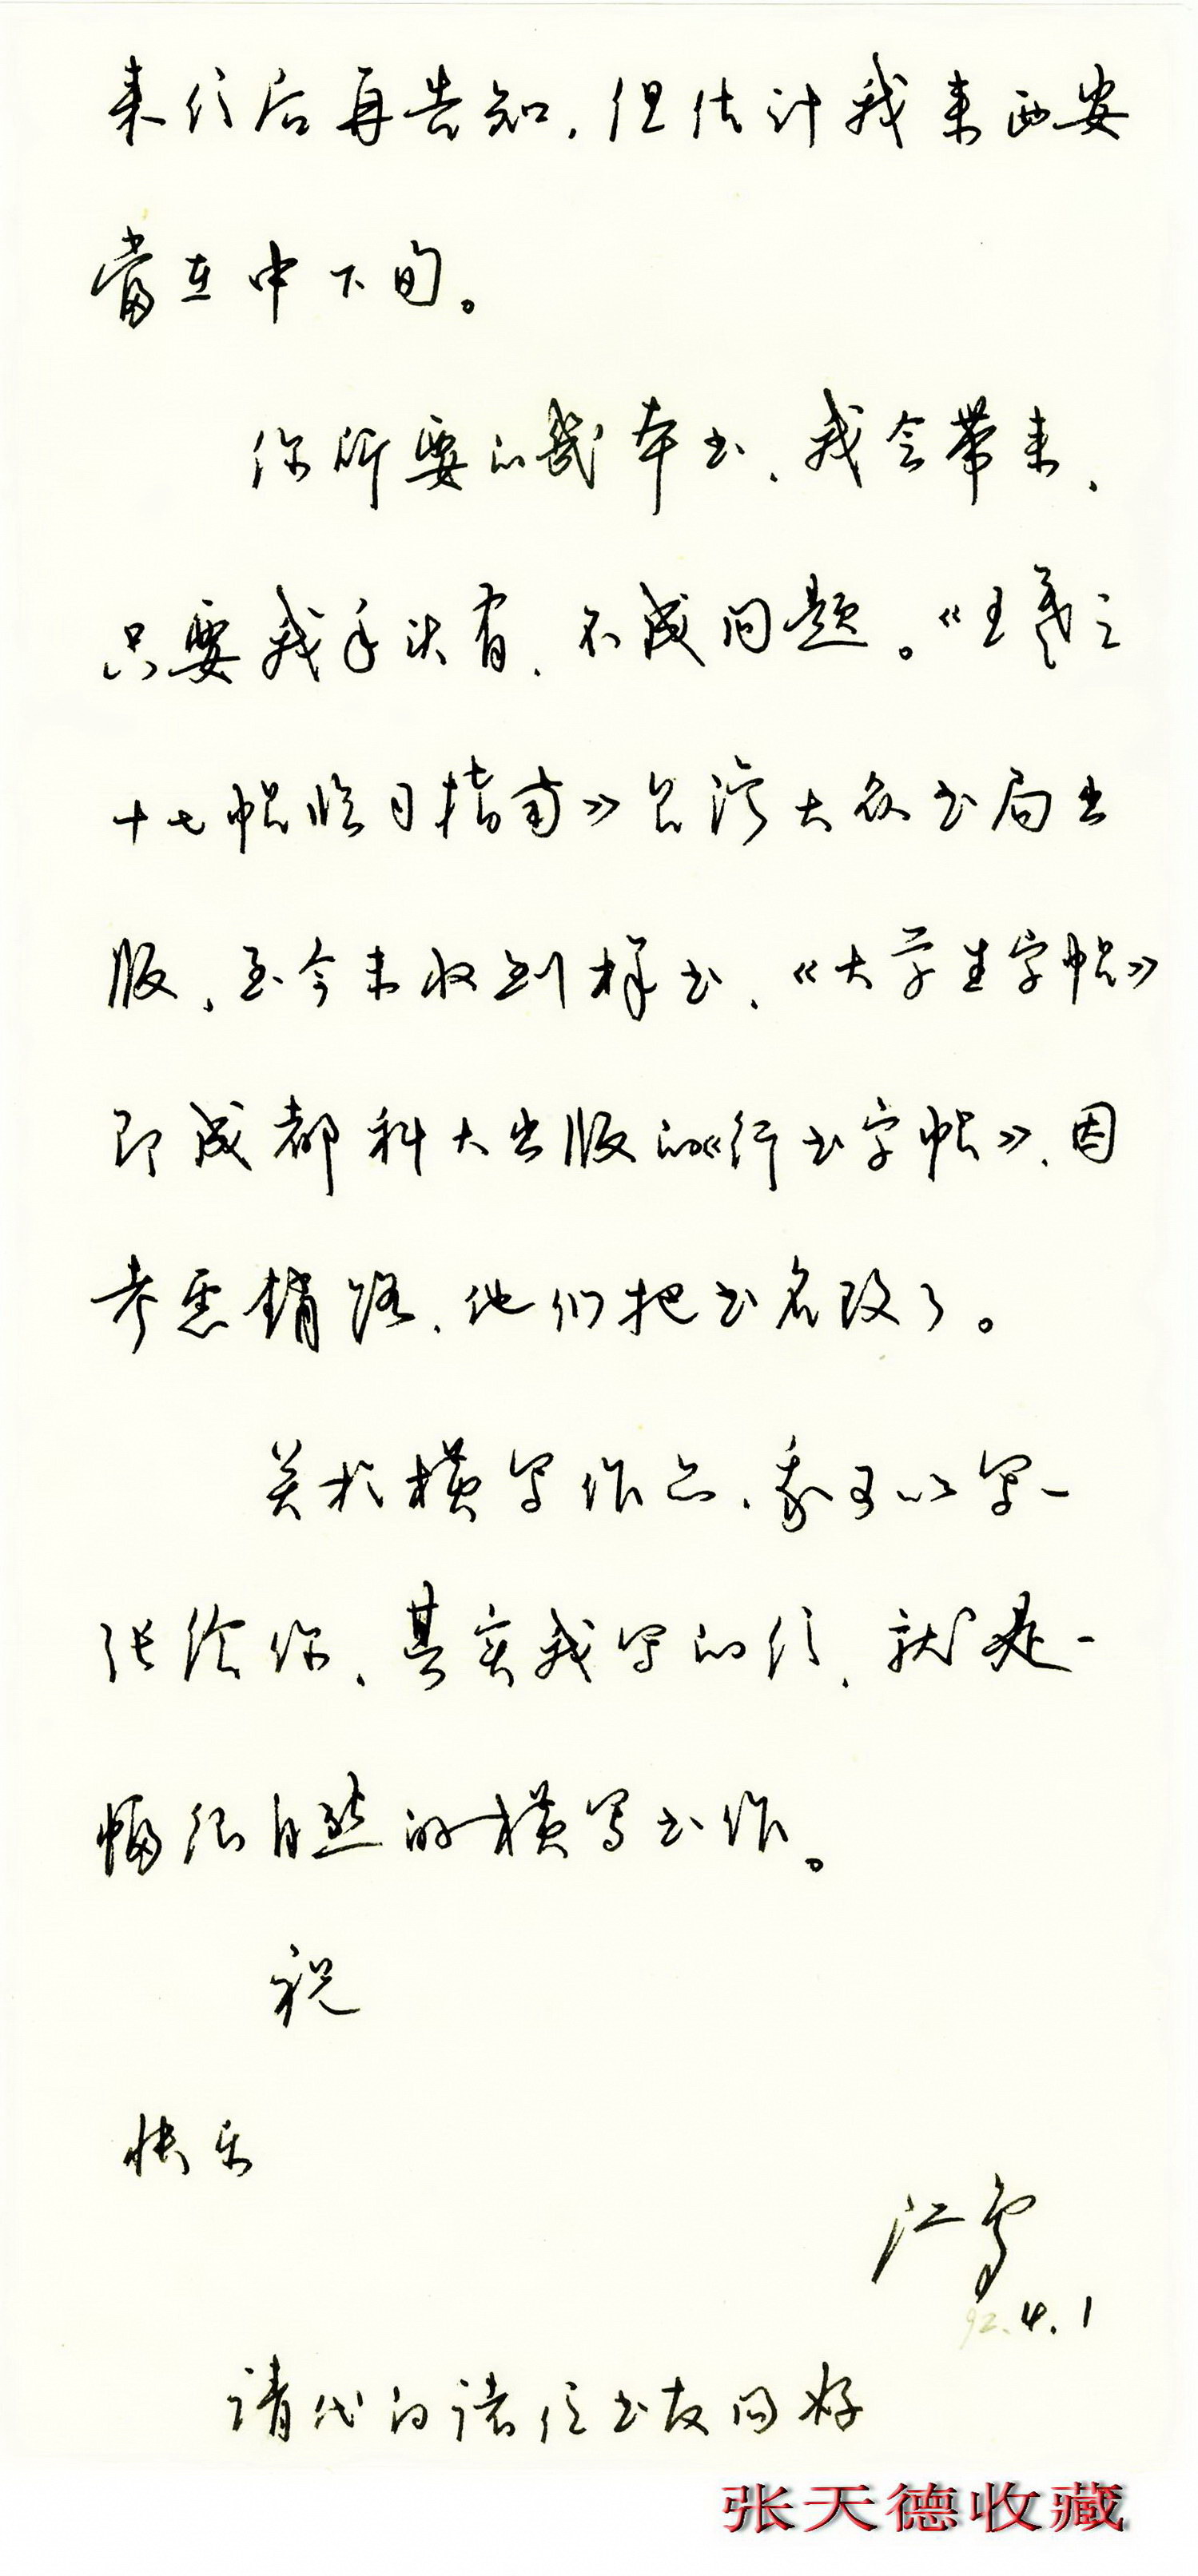 来信后再告知，但估计我来西安
當在中下旬。
你所要的幾本书，我会带来，
只要我手决有，不成问题。《王羲之
十七帖临习指南》台湾大众书局出
版，至今未收到样书，《大学生字帖》
即成都科大出版的《行书字帖》，因
考虑销路，他们把书名改了。
关于横写作品，我可以写一
张给你，其实我写的信，就是一
幅很自然的横写书作。
祝
快乐
92.4.1
请代向诸位书友问好
张天德收藏